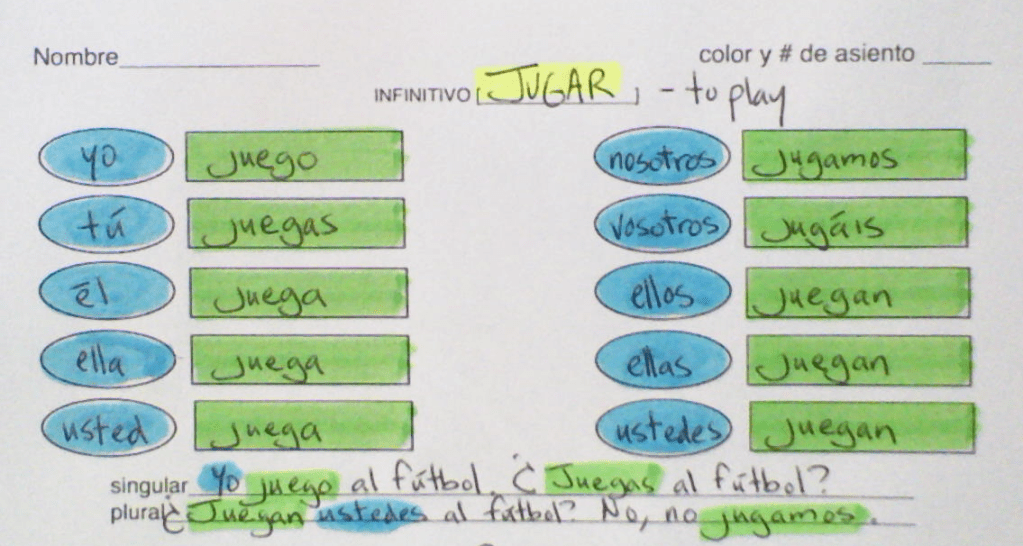 Nombre color y # de asiento
INFINITIVO [JUGAR] - to play
yo juego nosotros jugamos
tú juegas vosotros jugáis
él juega ellos juegan
ella juega ellas juegan
usted juega ustedes juegan
singular Yo juego al fútbol. ¿Juegas al fútbol?
plural ¿Juegan ustedes al fútbol? No, no jugamos.